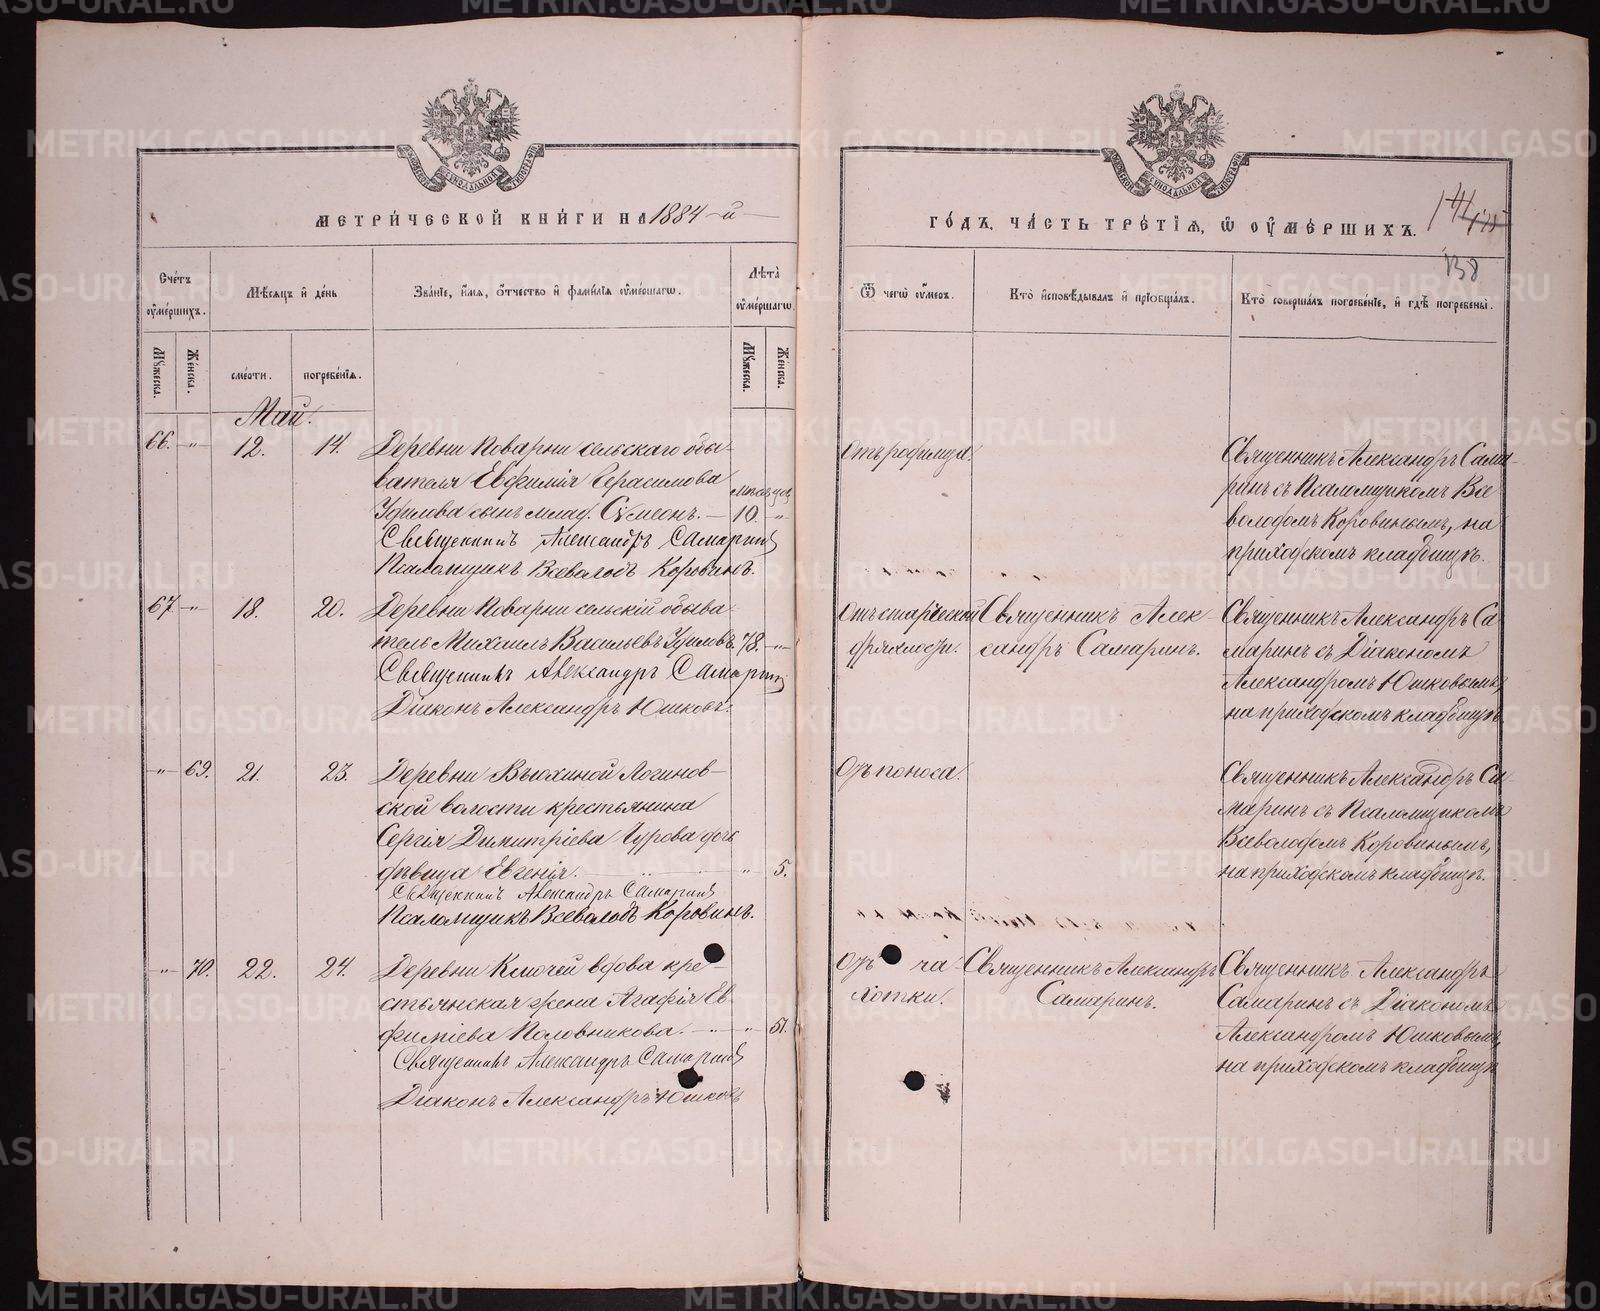 МЕТРИЧЕСКОЙ КНИГИ НА 1884-й
Счетъ умершихъ.
Мѣсяцъ и день
Званіе, имя, отчество и фамилія умершаго.
Лѣта умершаго
Мужеска.
Женска.
смерти.
погребенія.
Мужеска.
Женска.
Май.
66. -"- 12. 14. Деревни Поварни сельскаго обы-
вателя Евфимія Герасимова
Уфилова сынъ млад. Сѵмеонъ. - 10. -"-
Священникъ Александръ Самаринъ
Псаломщикъ Всеволодъ Коровинъ.
67. -"- 18. 20. Деревни Поварни сельскій обыва-
тель Михаилъ Васильевъ Уфиловъ. 78. -"-
Священникъ Александръ Самаринъ
Діаконъ Александръ Юшковъ.
-"- 69. 21. 23. Деревни Вьюхиной Логинов-
ской волости крестьянина
Сергія Димитріева Чурова дочь
дѣвица Евгенія. " 5.
Священникъ Александръ Самаринъ
Псаломщикъ Всеволодъ Коровинъ.
-"- 70. 22. 24. Деревни Ключей вдова кре-
стьянская жена Агафія Ев-
фиміева Половникова. -"- " 51.
Священникъ Александръ Самаринъ
Діаконъ Александръ Юшковъ
ГОДЪ, ЧАСТЬ ТРЕТІЯ, Ѿ ОУМЕРШИХЪ.
138
Ѿ чегѡ умеръ.
Кто исповѣдывалъ и пріобщалъ.
Кто совершалъ погребеніе, и гдѣ погребены.
Отъ родимца.
Священникъ Александръ Сама-
ринъ съ Псаломщикомъ Все-
володомъ Коровинымъ, на
приходскомъ кладбищѣ.
Отъ старческой
дряхлости.
Священникъ Алек-
сандръ Самаринъ.
Священникъ Александръ Са-
маринъ съ Діакономъ
Александромъ Юшковымъ,
на приходскомъ кладбищѣ.
Отъ поноса.
Священникъ Александръ Са-
маринъ съ Псаломщикомъ
Всеволодомъ Коровинымъ,
на приходскомъ кладбищѣ.
Отъ ча-
хотки.
Священникъ Александръ
Самаринъ.
Священникъ Александръ
Самаринъ съ Діакономъ
Александромъ Юшковымъ,
на приходскомъ кладбищѣ
METRIKI.GASO-URAL.RU